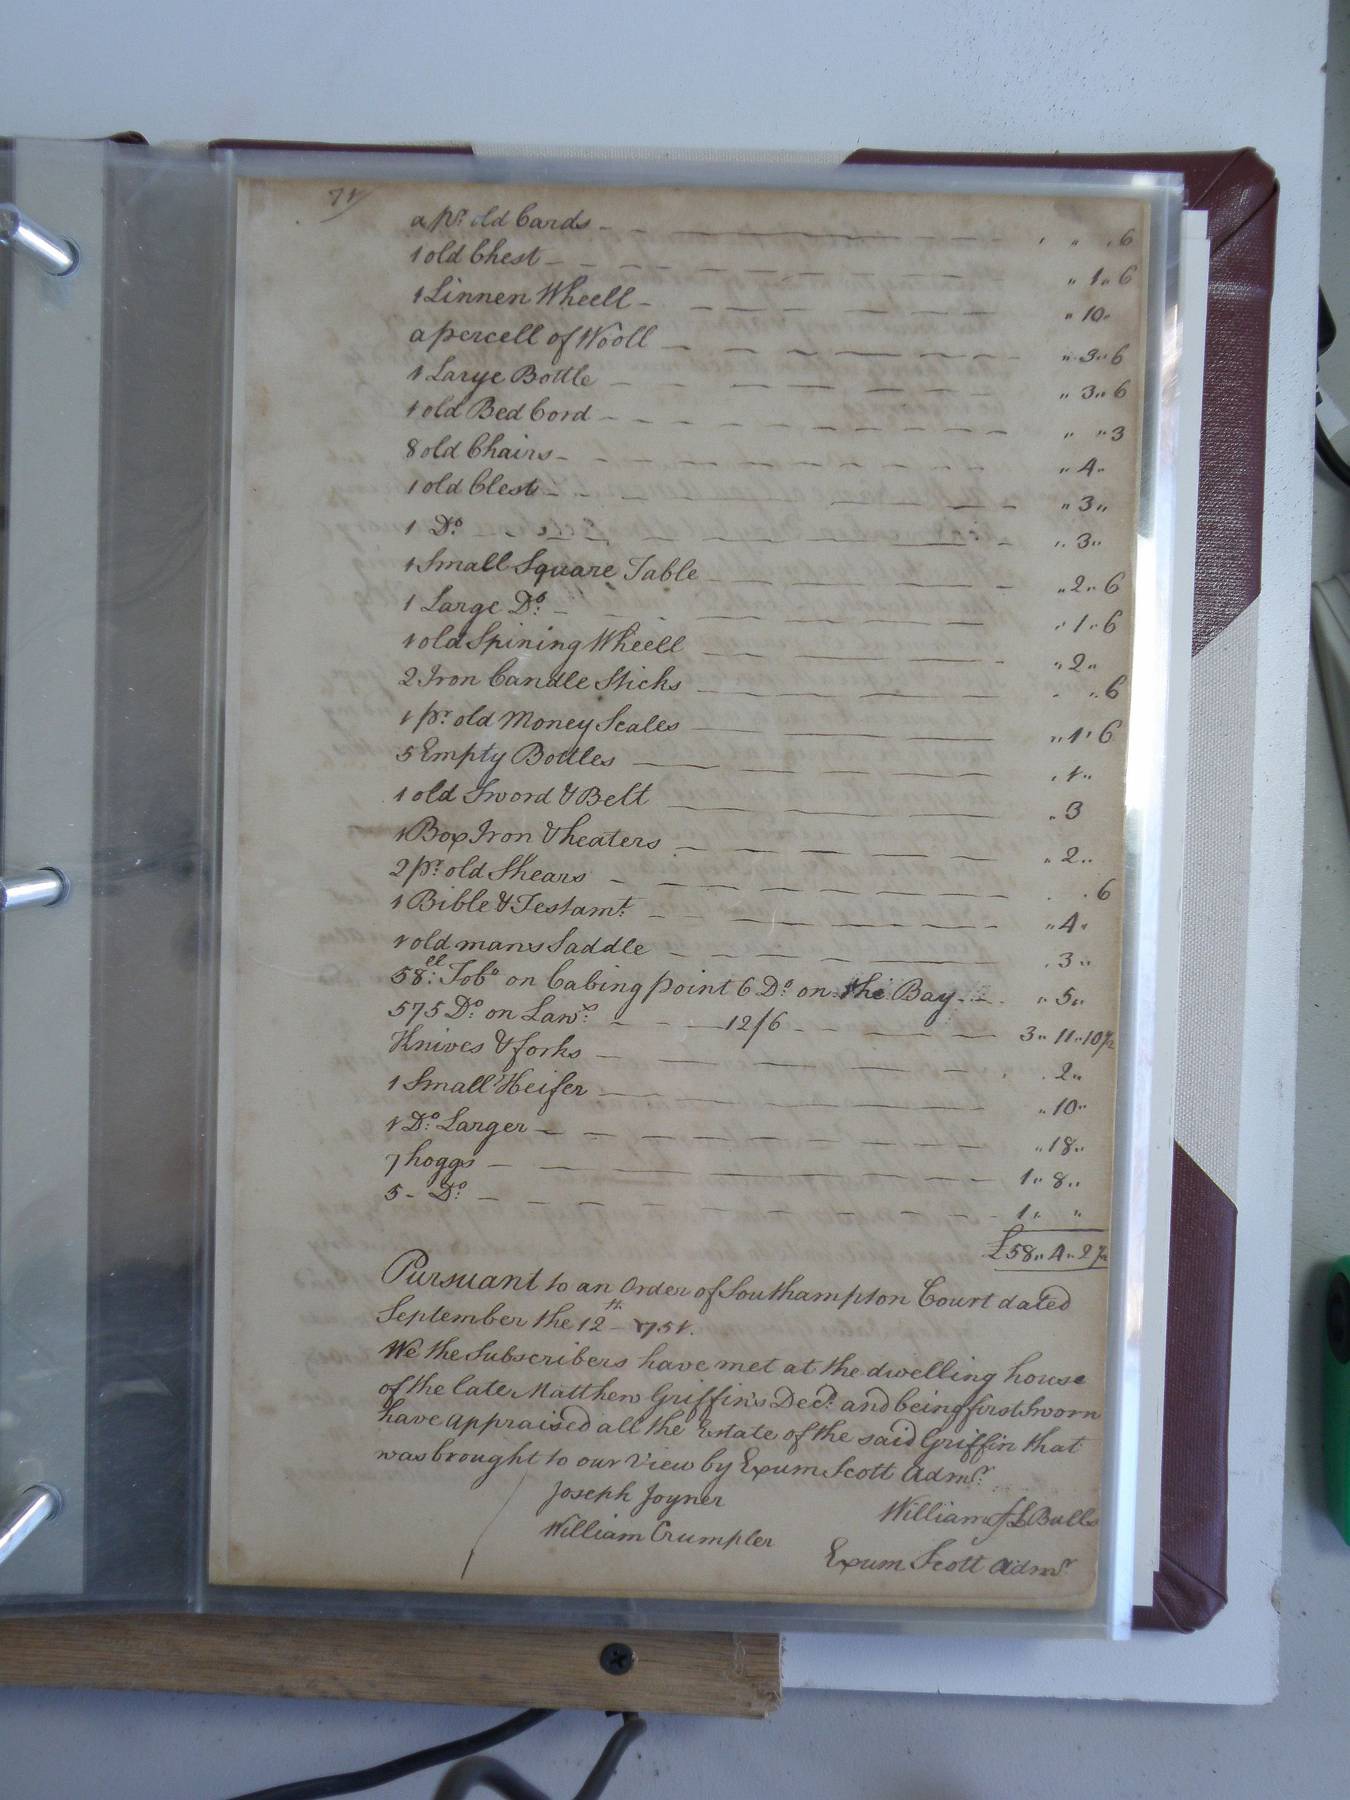 71
a pr. old Cards - - - - 6
1 old Chest - - - - " 1 " 6
1 Linnen Wheell - - - - " 10 "
a percell of Wooll - - - - " 3 " 6
1 Large Bottle - - - - " 3 " 6
1 old Bed Cord - - - - " " 3
8 old Chairs - - - - " 4 "
1 old Clest - - - - " 3 "
1 Do. - - - - " 3 "
1 Small Square Table - - - - " 2 " 6
1 Large Do. - - - - " 1 " 6
1 old Spining Wheell - - - - " 2 "
2 Iron Candle Sticks - - - - " 6
1 pr. old Money Scales - - - - " 1 " 6
5 Empty Bottles - - - - " 1 "
1 old Sword & Belt - - - - " 3
1 Box Iron & heaters - - - - " 2 "
2 pr. old Shears - - - - 6
1 Bible & Testamt. - - - - " 4 "
1 old mans Saddle - - - - " 3 "
58ll. Tobo on Cabing point 6 Do. on the Bay - - " 5 "
575 Do. on Lawe. - - - 12/6 - - - 3 " 11 " 10½
Knives & forks - - - - " 2 "
1 Small Heifer - - - - " 10 "
1 Do. Larger - - - - " 18 "
7 hoggs - - - - 1 " 8 "
5 - Do. - - - - 1 " "
£58 " 4 " 2½
Pursuant to an Order of Southampton Court dated
September the 12th 1751.
We the Subscribers have met at the dwelling house
of the late Matthew Griffin's Decd. and being first Sworn
have appraised all the Estate of the said Griffin that
was brought to our View by Exum Scott Admr.
Joseph Joyner
William Bulls
William Crumpler
Exum Scott Admr.